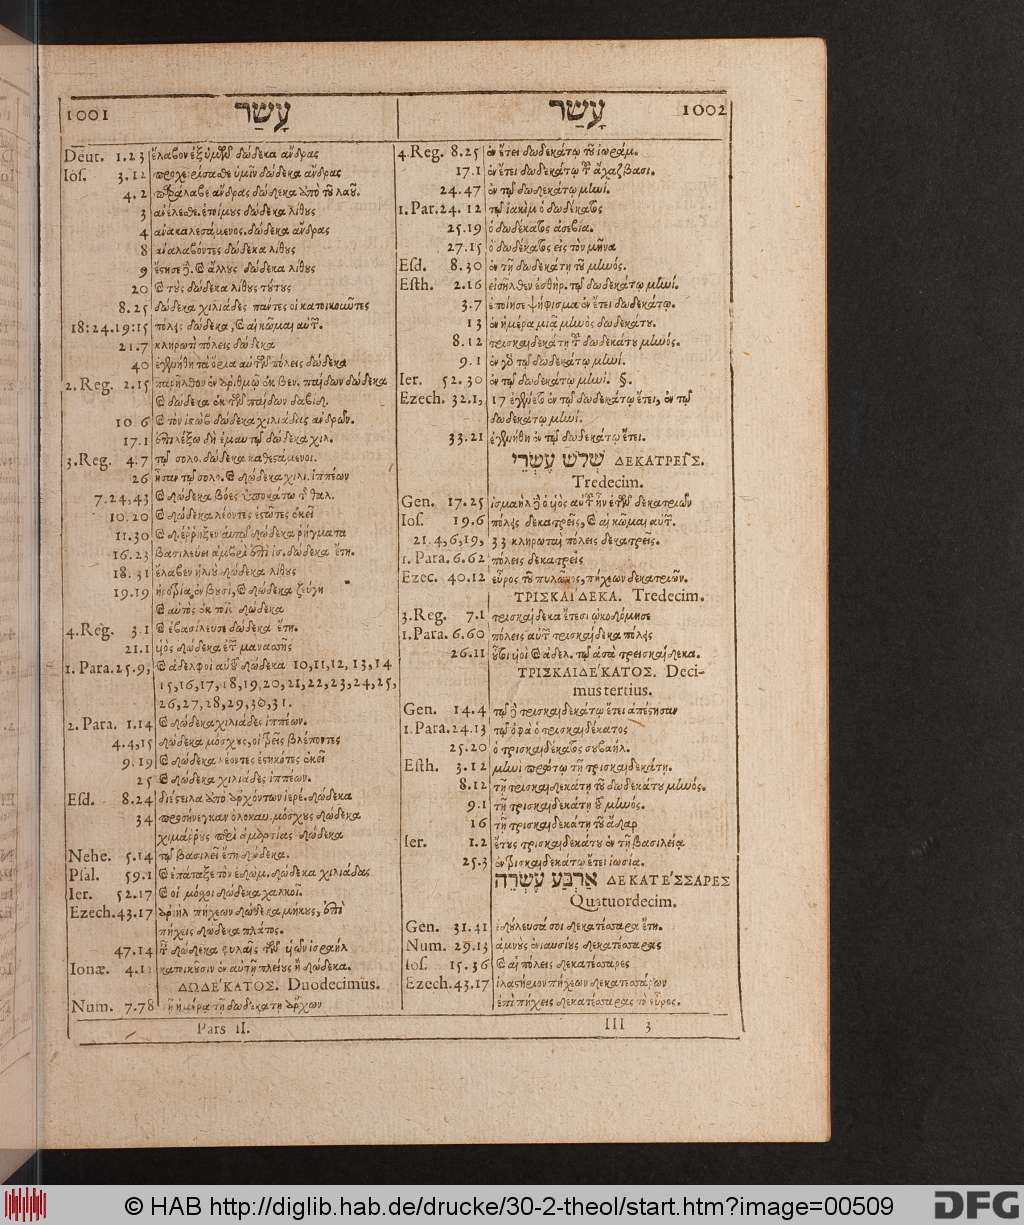 1001 עָשַׂר
Deut. 1.23 ἔλαβον ἐξ ὑμῶν δώδεκα ἄνδρας
Ios. 3.12 προχειρίσασθε ὑμῖν δώδεκα ἄνδρας
4.2 παράλαβε ἄνδρας δώδεκα ἀπὸ τοῦ λαοῦ.
3 ἀνέλεσθε. ἑτοίμους δώδεκα λίθους
4 ἀνακαλεσάμενος. δώδεκα ἄνδρας
8 ἀναλαβόντες δώδεκα λίθους
9 ἔστησε ἰ. καὶ ἄλλους δώδεκα λίθους
20 καὶ τοὺς δώδεκα λίθους τούτους
8.25 δώδεκα χιλιάδες πάντες οἱ κατοικοῦντες
18:24.19:15 πόλεις δώδεκα, καὶ αἱ κῶμαι αὐτῶν.
21.7 κληρωτὶ πόλεις δώδεκα
40 ἐγενήθη τὰ ὅρια αὐτῶν πόλεις δώδεκα
2. Reg. 2.15 παρῆλθον ἐν ἀριθμῷ ἐκ βεν. παίδων δώδεκα
καὶ δώδεκα ἐκ τῶν παίδων δαβίδ.
10.6 καὶ τὸν ἰστὼβ δώδεκα χιλιάδας ἀνδρῶν.
17.1 ἐπιλέξω δὴ ἐμαυτῷ δώδεκα χιλ.
3. Reg. 4.7 τῷ σολο. δώδεκα καθεσαμενοι.
26 ἦσαν τῷ σολο. καὶ δώδεκα χιλι. ἱππέων
7.24,43 καὶ δώδεκα βόες ὑποκάτω τῆς θαλ.
10.20 καὶ δώδεκα λέοντες ἑστῶτες ἐκεῖ
11.30 καὶ διέρρηξεν αὐτὸ δώδεκα ῥήγματα
16.23 βασιλεύει ἀμβρὶ ἐπὶ ἰσ. δώδεκα ἔτη.
18.31 ἔλαβεν ἠλιοὺ δώδεκα λίθους
19.19 ἠροτρία ἐν βουσὶ, καὶ δώδεκα ζεύγη
καὶ αὐτὸς ἐκ τοῖς δώδεκα
4. Reg. 3.1 καὶ ἐβασίλευσε δώδεκα ἔτη.
21.1 υἱὸς δώδεκα ἐτῶν μανασσῆς
1. Para. 25.9, καὶ ἀδελφοὶ αὐτοῦ δώδεκα 10,11,12,13,14
15,16,17,18,19,20,21,22,23,24,25,
26,27,28,29,30,31.
2. Para. 1.14 καὶ δώδεκα χιλιάδες ἱππέων.
4.4,15 δώδεκα μόσχους, οἱ τρεῖς βλέποντες
9.19 καὶ δώδεκα λέοντες ἑστηκότες ἐκεῖ
25 καὶ δώδεκα χιλιάδες ἱππέων.
Esd. 8.24 διέστειλα ἀπὸ ἀρχόντων ἱερέ. δώδεκα
34 προσήνεγκαν ὁλοκαυ. μόσχους δώδεκα
χιμάρρους περὶ ἁμαρτίας δώδεκα
Nehe. 5.14 τῷ βασιλεῖ ἔτη δώδεκα.
Psal. 59.1 καὶ ἐπάταξε τὸν ἐδωμ. δώδεκα χιλιάδας
Ier. 52.17 καὶ οἱ μόσχοι δώδεκα χαλκοῖ.
Ezech. 43.17 ἀριὴλ πήχεων δώδεκα μήκους, ἐπὶ
πήχεις δώδεκα πλάτος.
47.14 ταῖς δώδεκα φυλαῖς τῶν υἱῶν ἰσραήλ
Ionæ. 4.11 κατοικοῦσιν ἐν αὐτῇ πλείους ἢ δώδεκα.
ΔΩΔΕ´ΚΑΤΟΣ. Duodecimus.
Num. 7.78 τῇ ἡμέρᾳ τῇ δωδεκάτῃ ἄρχων
Pars II.
עָשַׂר 1002
4. Reg. 8.25 ἐν ἔτει δωδεκάτῳ τοῦ ἰωράμ.
17.1 ἐν ἔτει δωδεκάτῳ τοῦ ἄχαζ βασι.
24.47 ἐν τῷ δωδεκάτῳ μηνί.
1. Par. 24.12 τῷ ἰακὶμ ὁ δωδέκατος
25.19 ὁ δωδέκατος ἀσεβία.
27.15 ὁ δωδέκατος εἰς τὸν μῆνα
Esd. 8.30 ἐν τῇ δωδεκάτῃ τοῦ μηνός.
Esth. 2.16 εἰσῆλθεν ἐσθὴρ. τῷ δωδεκάτῳ μηνί.
3.7 ἐποίησε ψήφισμα ἐν ἔτει δωδεκάτῳ.
13 ἐν ἡμέρᾳ μιᾷ μηνὸς δωδεκάτου.
8.12 τρισκαιδεκάτῃ τοῦ δωδεκάτου μηνός.
9.1 ἐν γὰρ τῷ δωδεκάτῳ μηνί.
Ier. 52.30 ἐν τῷ δωδεκάτῳ μηνί. §.
Ezech. 32.1, 17 ἐγένετο ἐν τῷ δωδεκάτῳ ἔτει, ἐν τῷ
δωδεκάτῳ μηνί.
33.21 ἐγενήθη ἐν τῷ δωδεκάτῳ ἔτει.
שְׁלֹשׁ עֶשְׂרֵי ΔΕΚΑΤΡΕΙ͂Σ.
Tredecim.
Gen. 17.25 ἰσμαὴλ δὲ ὁ υἱὸς αὐτοῦ ἦν ἐτῶν δεκατριῶν
Ios. 19.6 πόλεις δεκατρεῖς, καὶ αἱ κῶμαι αὐτῶν.
21.4,6,19, 33 κληρωταὶ πόλεις δεκατρεῖς.
1. Para. 6.62 πόλεις δεκατρεῖς
Ezec. 40.12 εὖρος τοῦ πυλῶνος, πήχεων δεκατριῶν.
ΤΡΙΣΚΑΙ´ΔΕΚΑ. Tredecim.
3. Reg. 7.1 τρισκαίδεκα ἔτεσι ᾠκοδόμησε
1. Para. 6.60 πόλεις αὐτῶν τρισκαίδεκα πόλεις
26.11 οὗτοι υἱοὶ καὶ ἀδελ. τῷ ἀσὰ τρεισκαίδεκα.
ΤΡΙΣΚΑΙΔΕ´ΚΑΤΟΣ. Deci-
mus tertius.
Gen. 14.4 τῷ δὲ τρισκαιδεκάτῳ ἔτει ἀπέστησαν
1. Para. 24.13 τῷ ὀφὰ ὁ τρισκαιδέκατος
25.20 ὁ τρισκαιδέκατος σουβαήλ.
Esth. 3.12 μηνὶ πρώτῳ τῇ τρισκαιδεκάτῃ.
8.12 τῇ τρισκαιδεκάτῃ τοῦ δωδεκάτου μηνός.
9.1 τῇ τρισκαιδεκάτῃ τοῦ μηνός.
16 τῇ τρισκαιδεκάτῃ τοῦ ἄδαρ
Ier. 1.2 ἔτους τρισκαιδεκάτου ἐν τῇ βασιλείᾳ
25.3 ἐν τρισκαιδεκάτῳ ἔτει ἰωσία.
אַרְבַּע עֶשְׂרֵה ΔΕΚΑΤΕ´ΣΣΑΡΕΣ
Quatuordecim.
Gen. 31.41 ἐδούλευσά σοι δεκατέσσαρα ἔτη.
Num. 29.13 ἀμνοὺς ἐνιαυσίους δεκατέσσαρας
Ios. 15.36 καὶ αἱ πόλεις δεκατέσσαρες
Ezech. 43.17 ἱλαστήριον πήχεων δεκατεσσάρων
ἐπὶ πήχεις δεκατέσσαρας τὸ εὖρος.
III 3
© HAB http://diglib.hab.de/drucke/30-2-theol/start.htm?image=00509
DFG